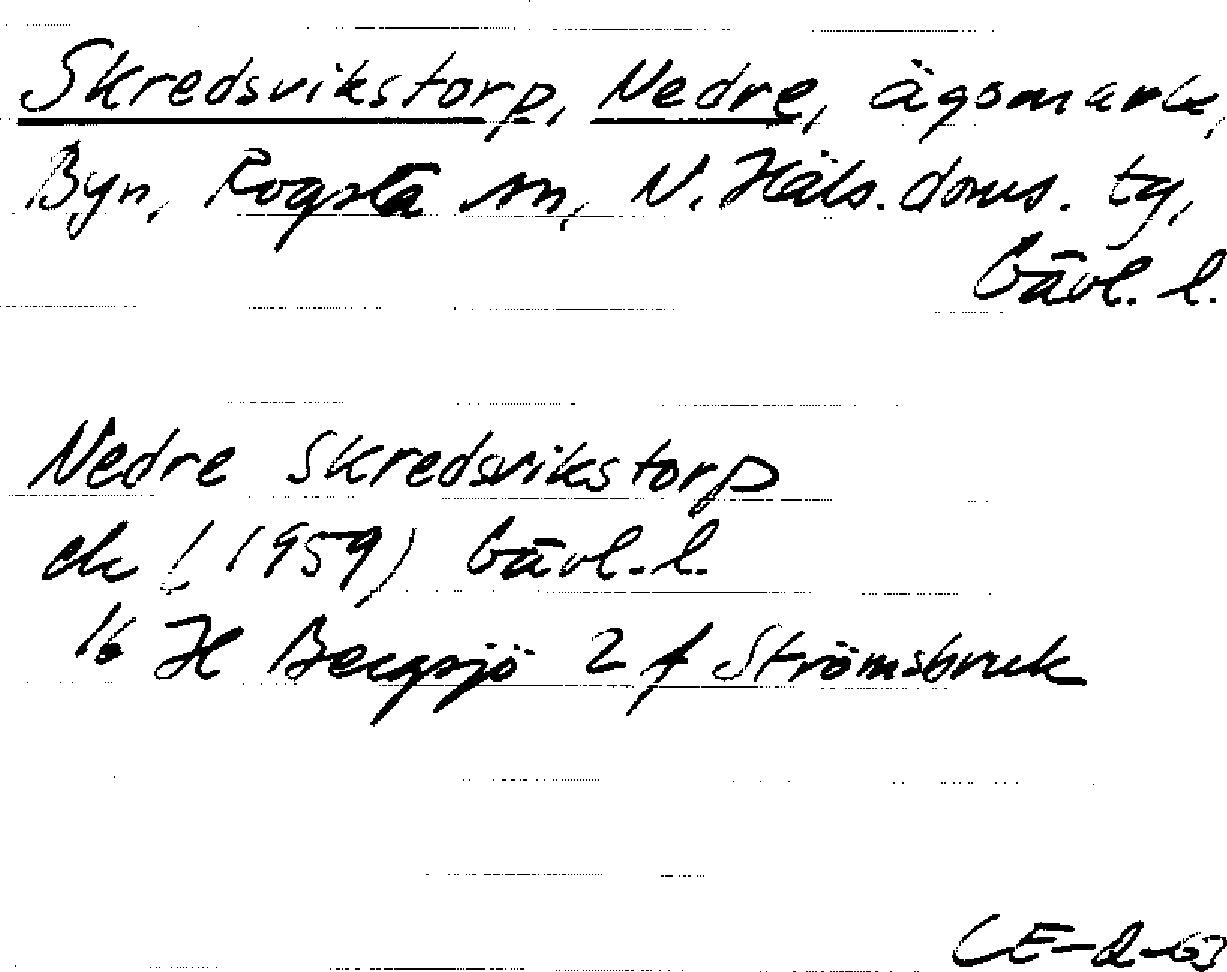 Skredsvikstorp, Nedre, ägomark,
Byn, Rogsta sn, N. Häls. doms. tg,
Gävl. l.
Nedre Skredsvikstorp
ek ! (1959) Gävl. l.
16 H Bergsjö 2 f Strömsbruk